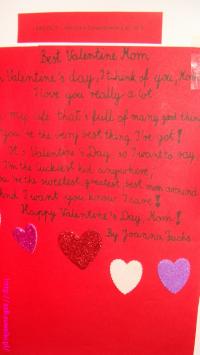 Best Valentine Mom
Valentine's day, I think of you, Mom
I love you really a lot
my life that's full of many good things
you're the very best thing I've got!
It's Valentine's Day, so I want to say
I'm the luckiest kid anywhere,
You're the sweetest greatest best mom around
And I want you know I care!
Happy Valentine's Day, Mom!
By Joanna Fuchs